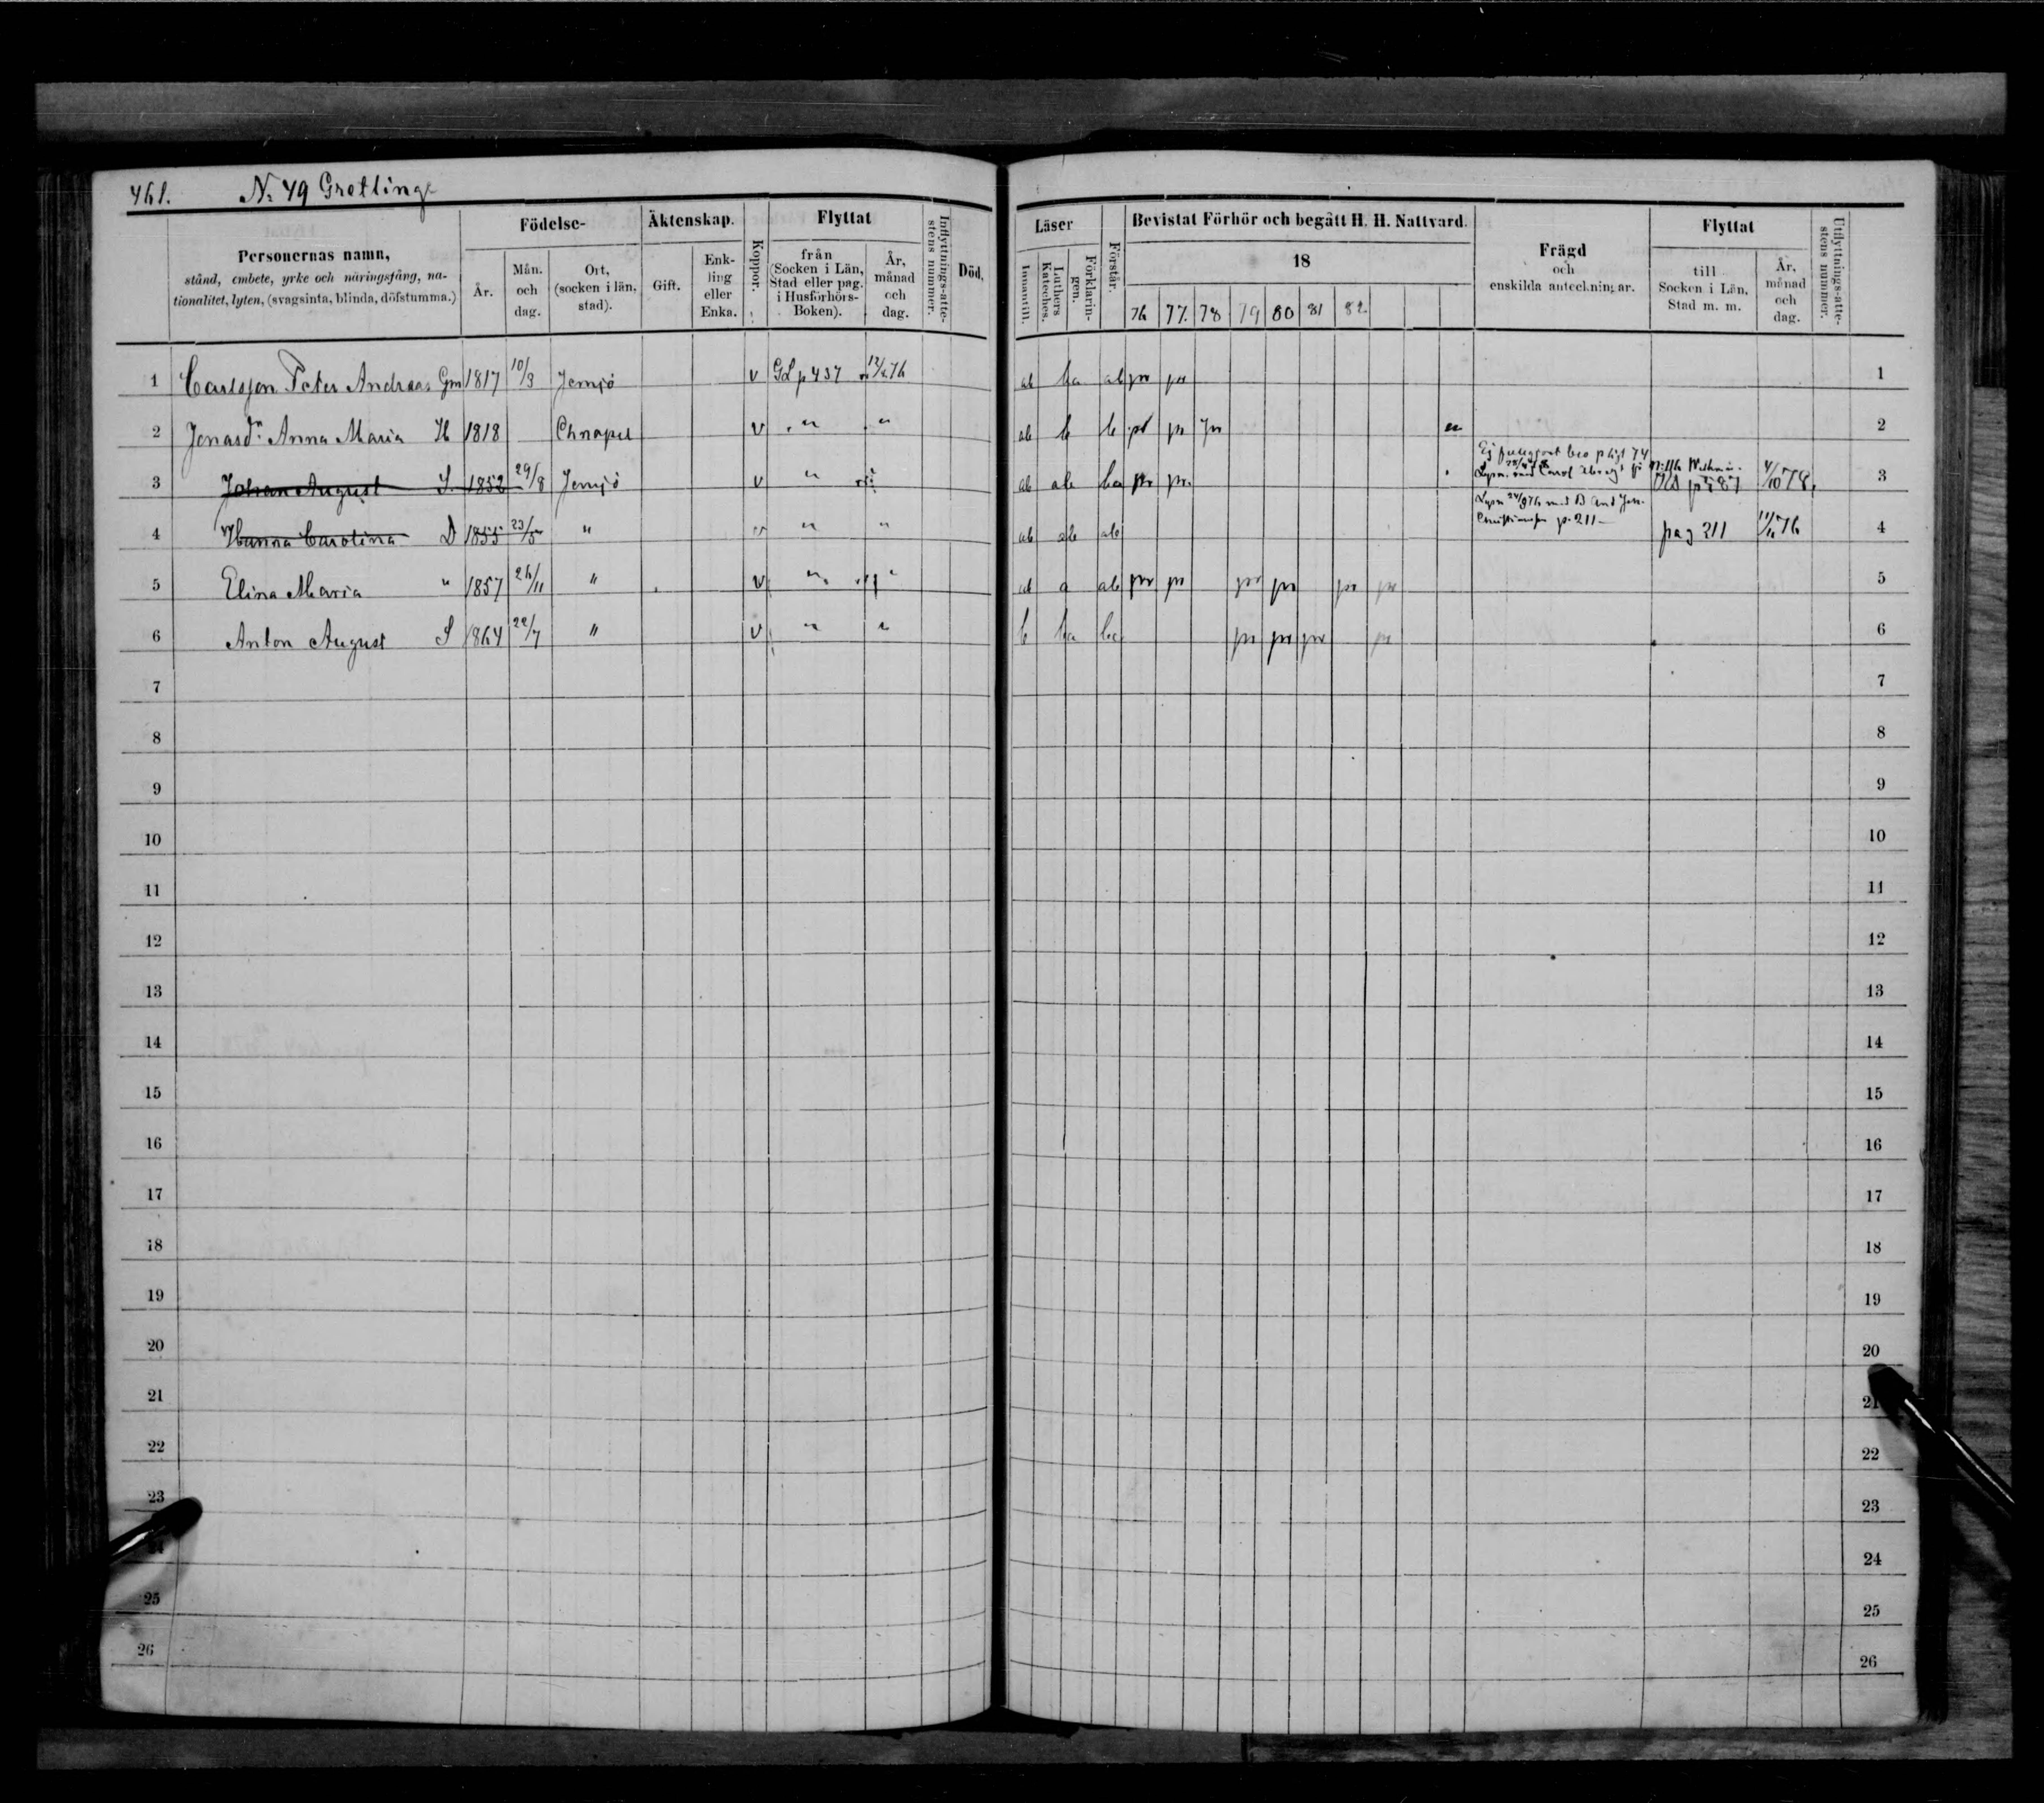 461. No 49 Gretlinge
Personernas namn,
stånd, embete, yrke och näringsfång, na-
tionalitet, lyten, (svagsinta, blinda, döfstumma.)
Födelse-
År.
Mån. och dag.
Ort, (socken i län, stad).
Äktenskap.
Gift.
Enk-ling eller Enka.
Koppor.
Flyttat
från (Socken i Län, Stad eller pag. i Husförhörs-Boken).
År, månad och dag.
Inflyttnings-atte-stens nummer.
Död.
Läser
Innantill.
Luthers Kateches.
Förklarin-gen.
Förstår.
Bevistat Förhör och begått H. H. Nattvard.
18
76 77. 78 79 80 81 82.
Frägd
och
enskilda anteckningar.
Flyttat
till Socken i Län, Stad m. m.
År, månad och dag.
Utflyttnings-atte-stens nummer.
1 Carlsson Peter Andreas Gm 1817 10/3 Jemjö v GL p 437 76 ab ba ab pr pr 1
2 Jonasdr Anna Maria H 1818 Chrapel v " " ab b b pr pr pr 2
3 Johan August S. 1852 29/8 Jemjö v " " ab ab ba pr pr. p 87 4/10 78, 3
4 Hanna Carolina D 1855 23/5 " v " " ab ab ab p. 211 pag 211 76 4
5 Elina Maria " 1857 26/11 " v " " ab a ab pr pr pr pr pr pr 5
6 Anton August S 1864 22/7 " v " " b ba ba pr pr pr pr 6
7 7
8 8
9 9
10 10
11 11
12 12
13 13
14 14
15 15
16 16
17 17
18 18
19 19
20 20
21 21
22 22
23 23
24
25 25
26 26